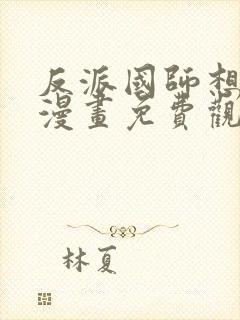 反派國師想
漫畫免費觀
林夏